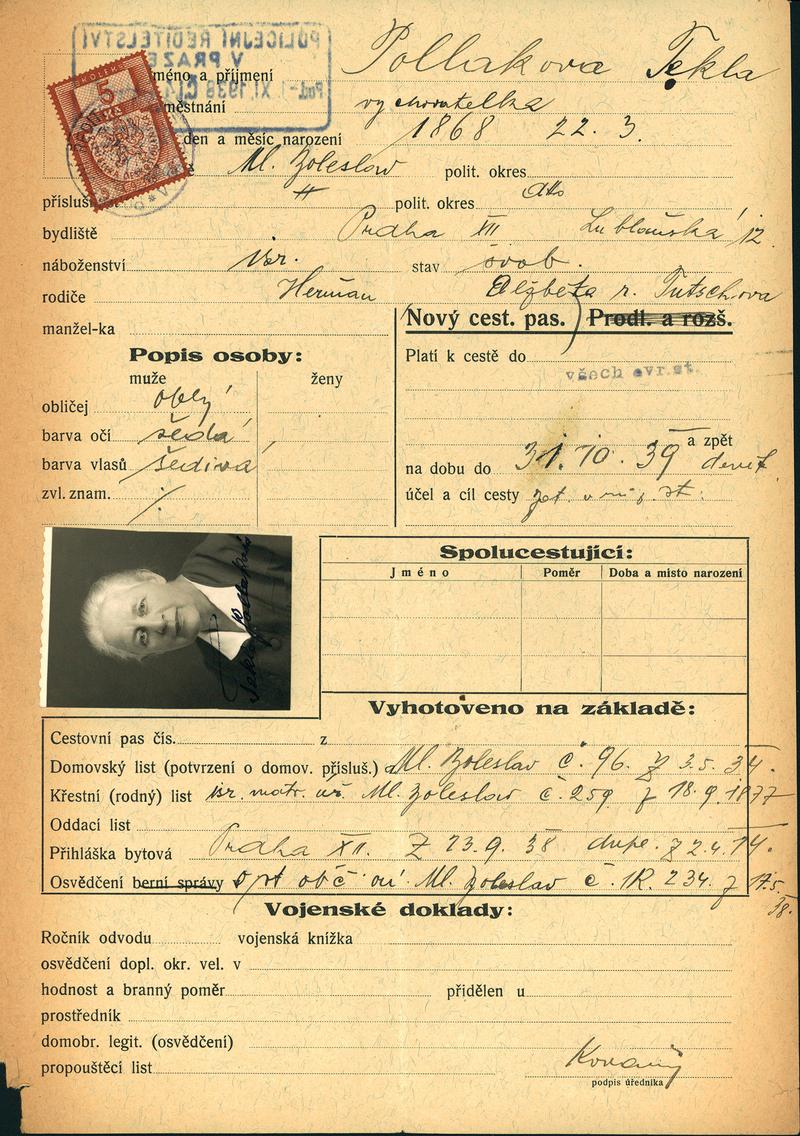 POLICEJNÍ ŘEDITELSTVÍ
V PRAZE
XI. 1938
KOLEK
5
Kčs
jméno a příjmení Pollakova Tekla
městnání vychovatelka
den a měsíc narození 1868 22. 3.
Ml. Boleslav polit. okres
přísluš polit. okres dtto
bydliště Praha XII Lublaňská 12
náboženství isr. stav svob.
rodiče Heřman Alžběta r. Tutschova
manžel-ka
Nový cest. pas. Prodl. a rozš.
Popis osoby:
muže ženy
obličej oblý
barva očí šedá
barva vlasů šedivá
zvl. znam. ·/·
Platí k cestě do
všech evr. st.
a zpět
na dobu do 31. 10. 39
účel a cíl cesty
Spolucestující:
Jméno Poměr Doba a místo narození
Tekla Pollaková
Vyhotoveno na základě:
Cestovní pas čís. z
Domovský list (potvrzení o domov. přísluš.) Ml. Boleslav č. 96. z 3.5. 34.
Křestní (rodný) list isr. matr. úř. Ml. Boleslav č. 259 z 18. 9. 1877
Oddací list
Přihláška bytová Praha XII. z 23. 9. 38 z 2. 4. 14.
Osvědčení berní správy o st. obč. Ml. Boleslav č. 234. z 17.5. 38.
Vojenské doklady:
Ročník odvodu vojenská knížka
osvědčení dopl. okr. vel. v
hodnost a branný poměr přidělen u
prostředník
domobr. legit. (osvědčení)
propouštěcí list
podpis úředníka